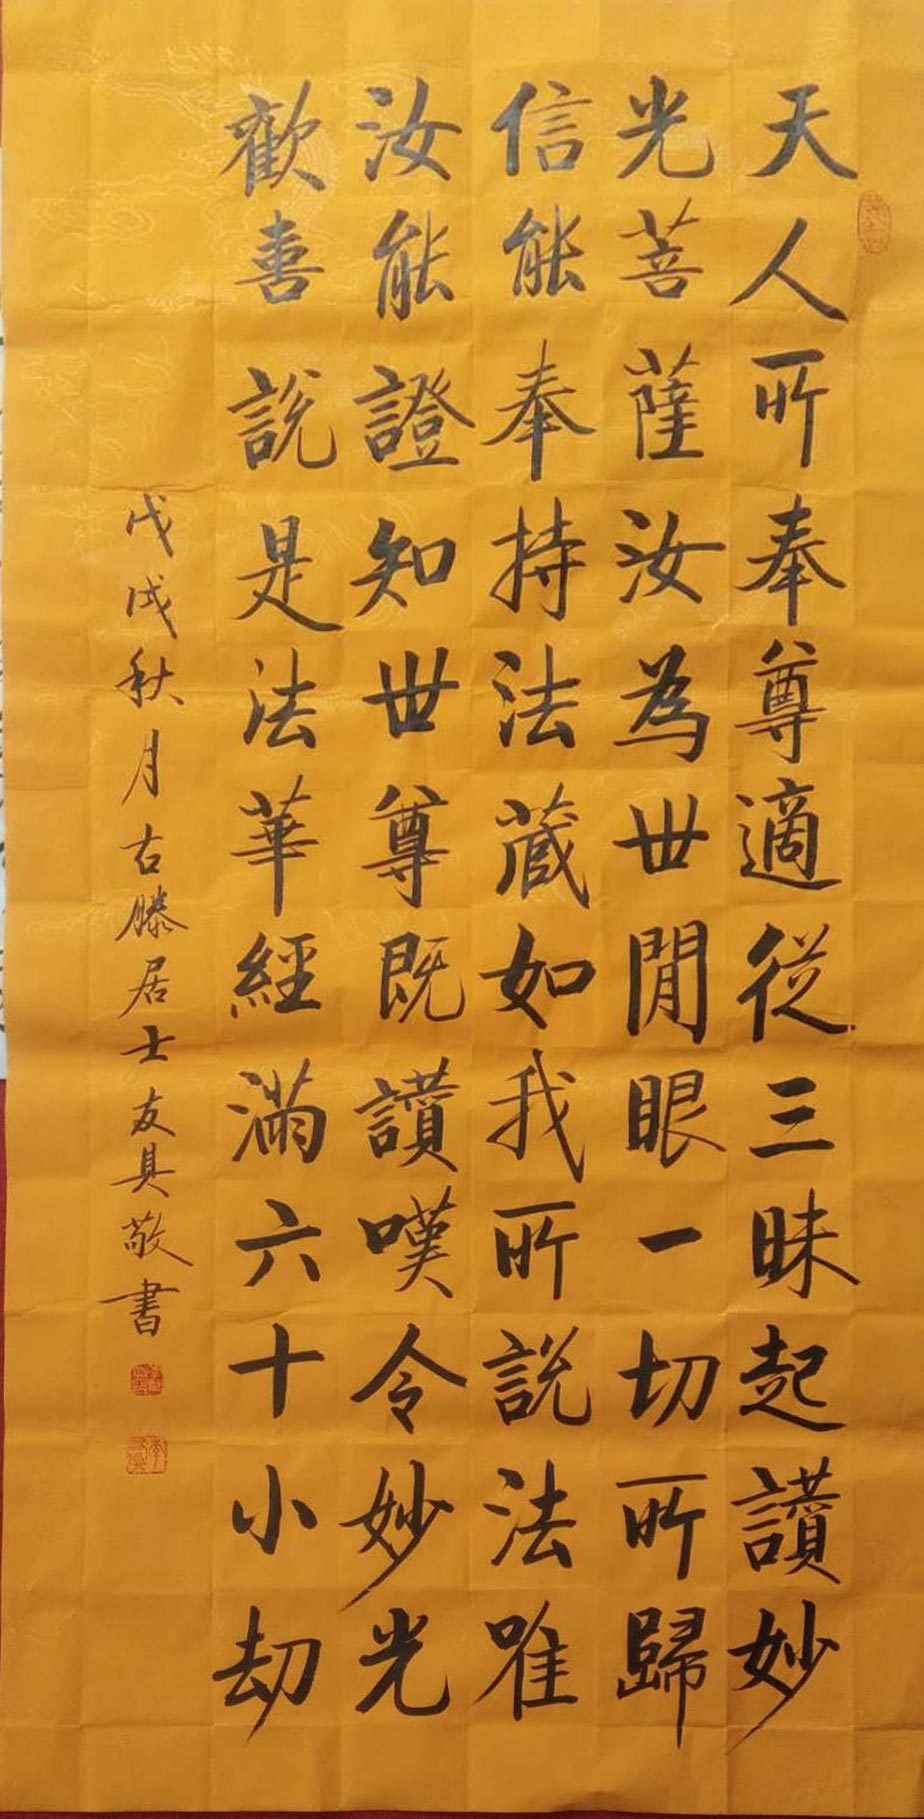 天人所奉尊適從三昧起讃妙
光菩薩汝為世間眼一切所歸
信能奉持法藏如我所説法唯
汝能證知世尊既讃嘆令妙光
歡喜説是法華經滿六十小劫
戊戌秋月古滕居士友具敬書